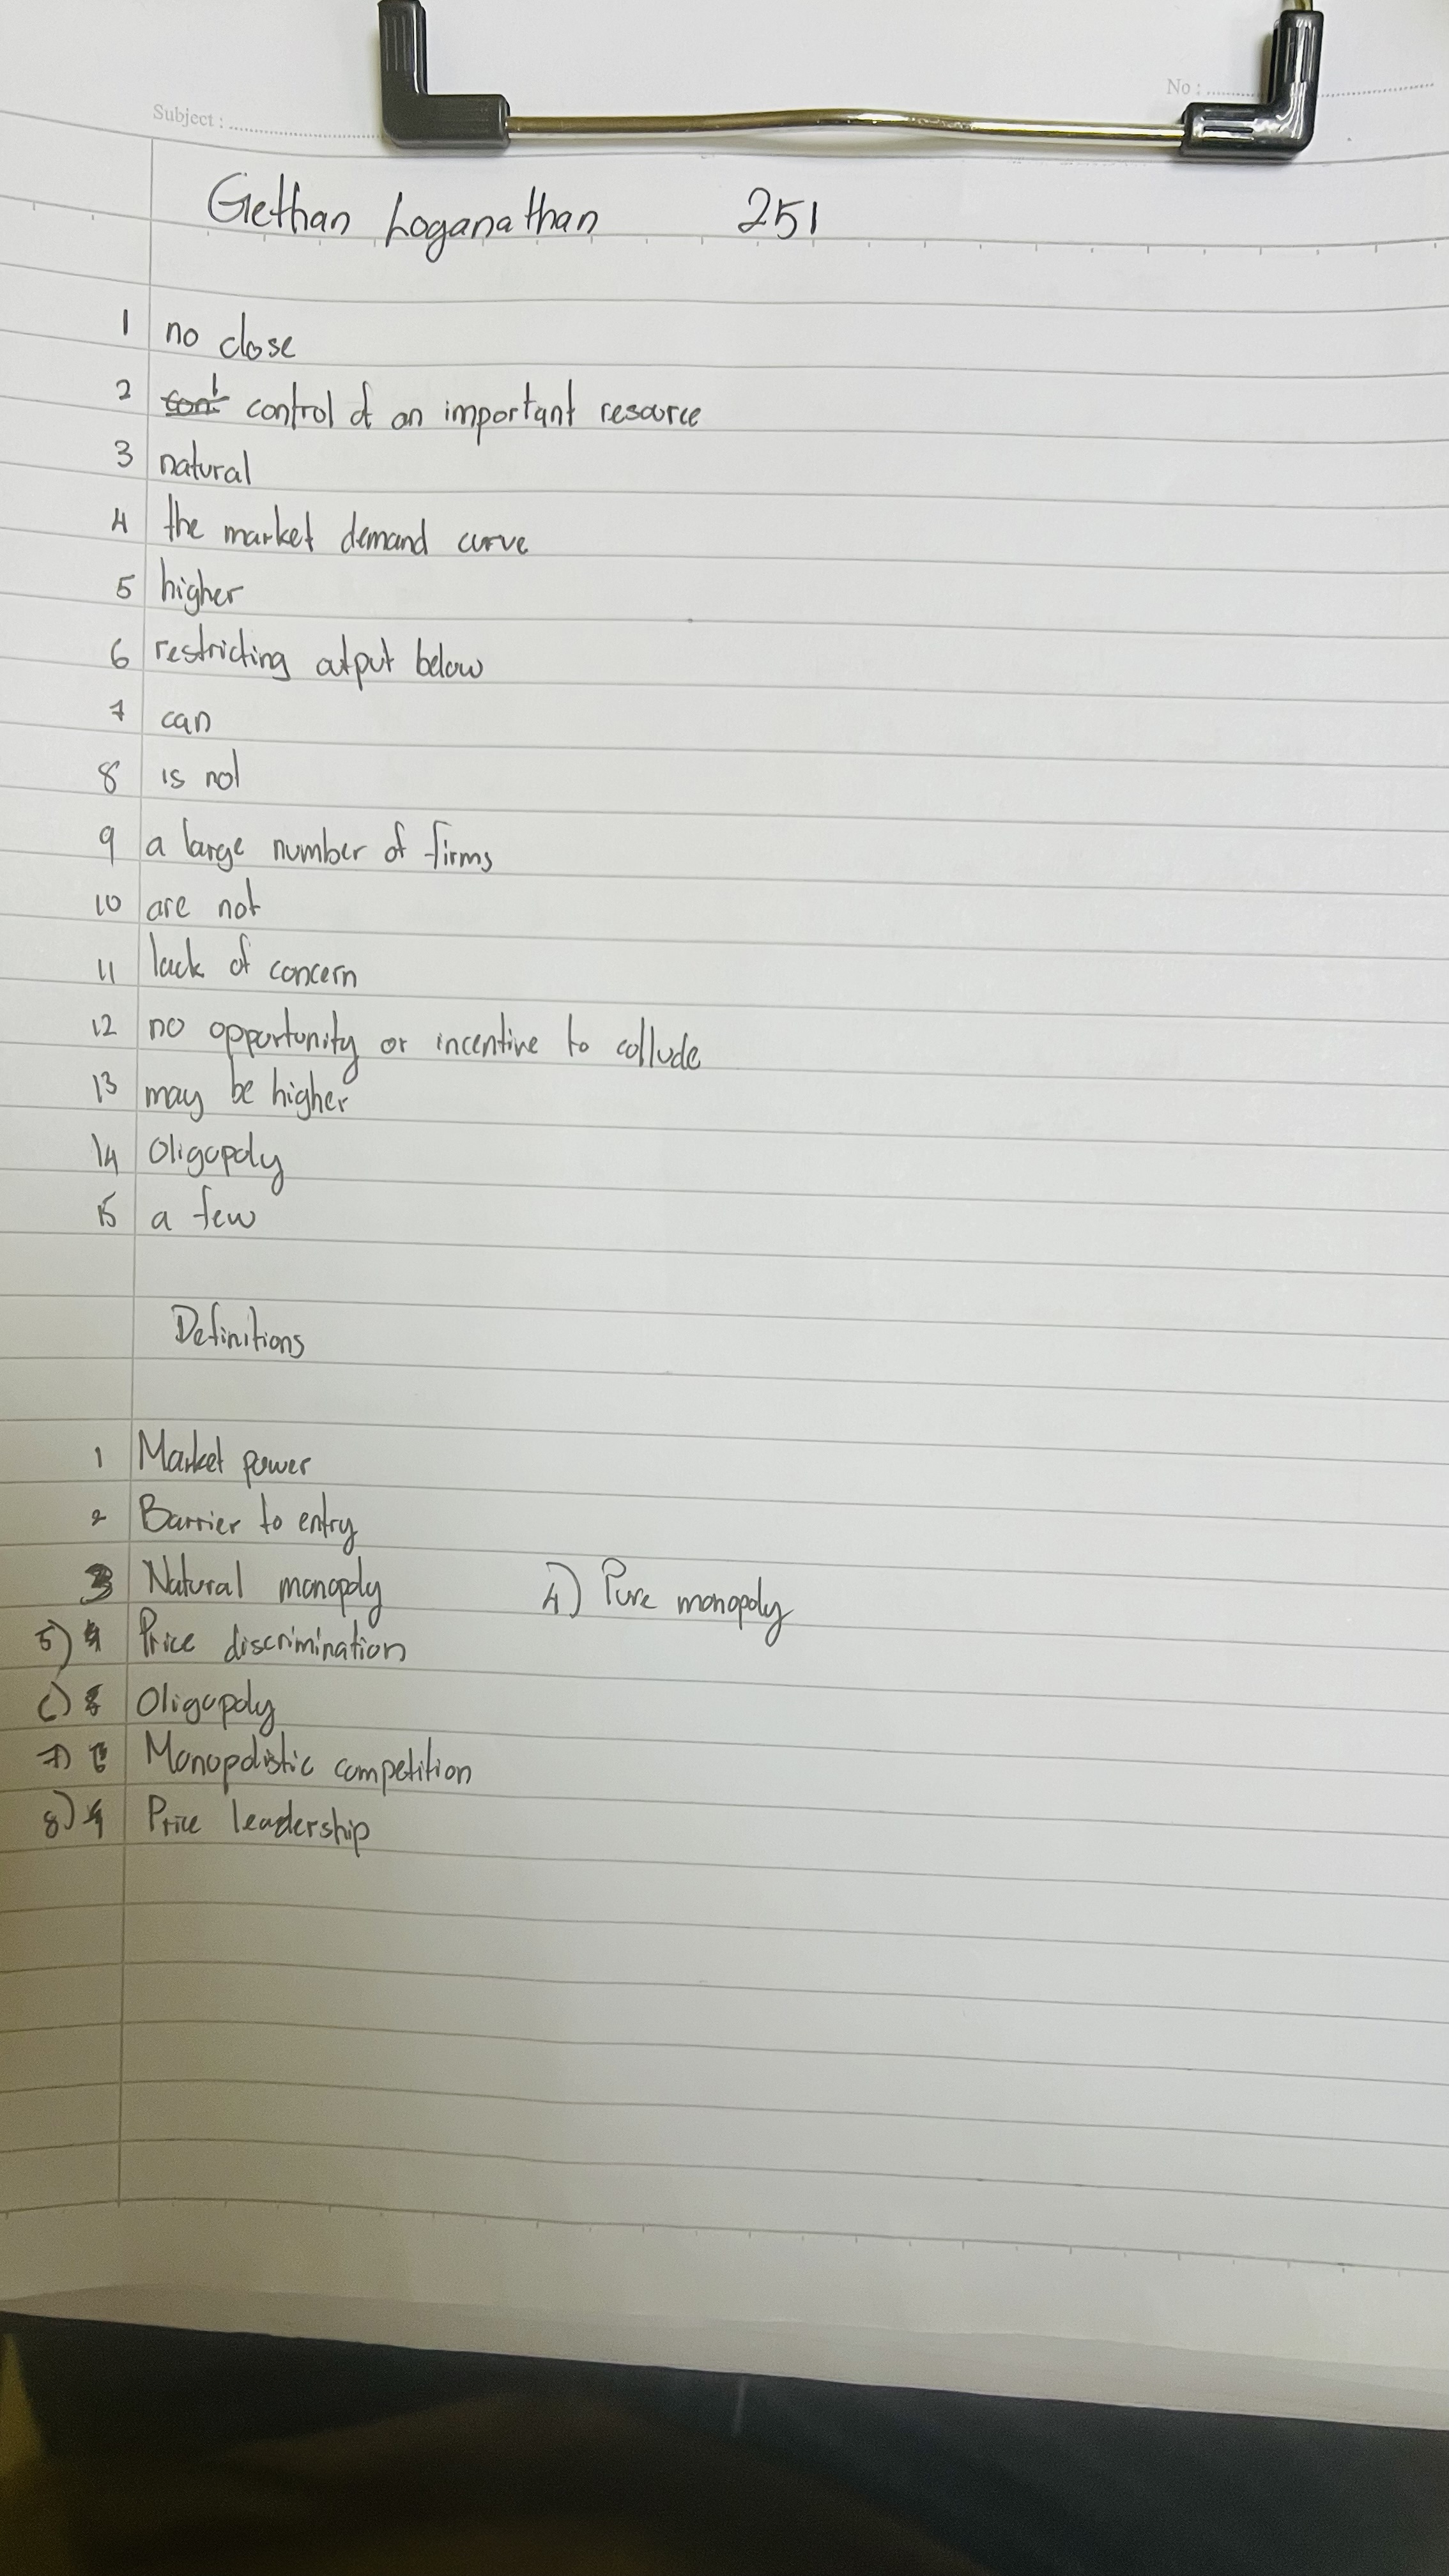 Subject :
No :
Gethan Loganathan 251
1 no close
2 control of an important resource
3 natural
4 the market demand curve
5 higher
6 restricting output below
7 can
8 is not
9 a large number of firms
10 are not
11 lack of concern
12 no opportunity or incentive to collude
13 may be higher
14 Oligopoly
15 a few
Definitions
1 Market power
2 Barrier to entry
3 Natural monopoly 4) Pure monopoly
5) Price discrimination
6) Oligopoly
7) Monopolistic competition
8) Price leadership